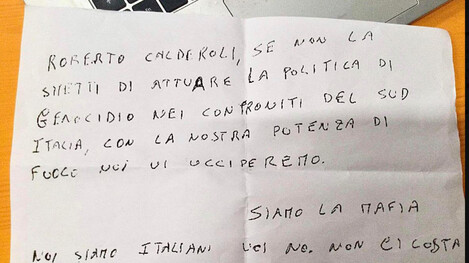 ROBERTO CALDEROLI, SE NON LA
SMETTI DI ATTUARE LA POLITICA DI
GENOCIDIO NEI CONFRONTI DEL SUD
ITALIA, CON LA NOSTRA POTENZA DI
FUOCO NOI VI UCCIDEREMO.
SIAMO LA MAFIA
NOI SIAMO ITALIANI VOI NO. NON CI COSTA